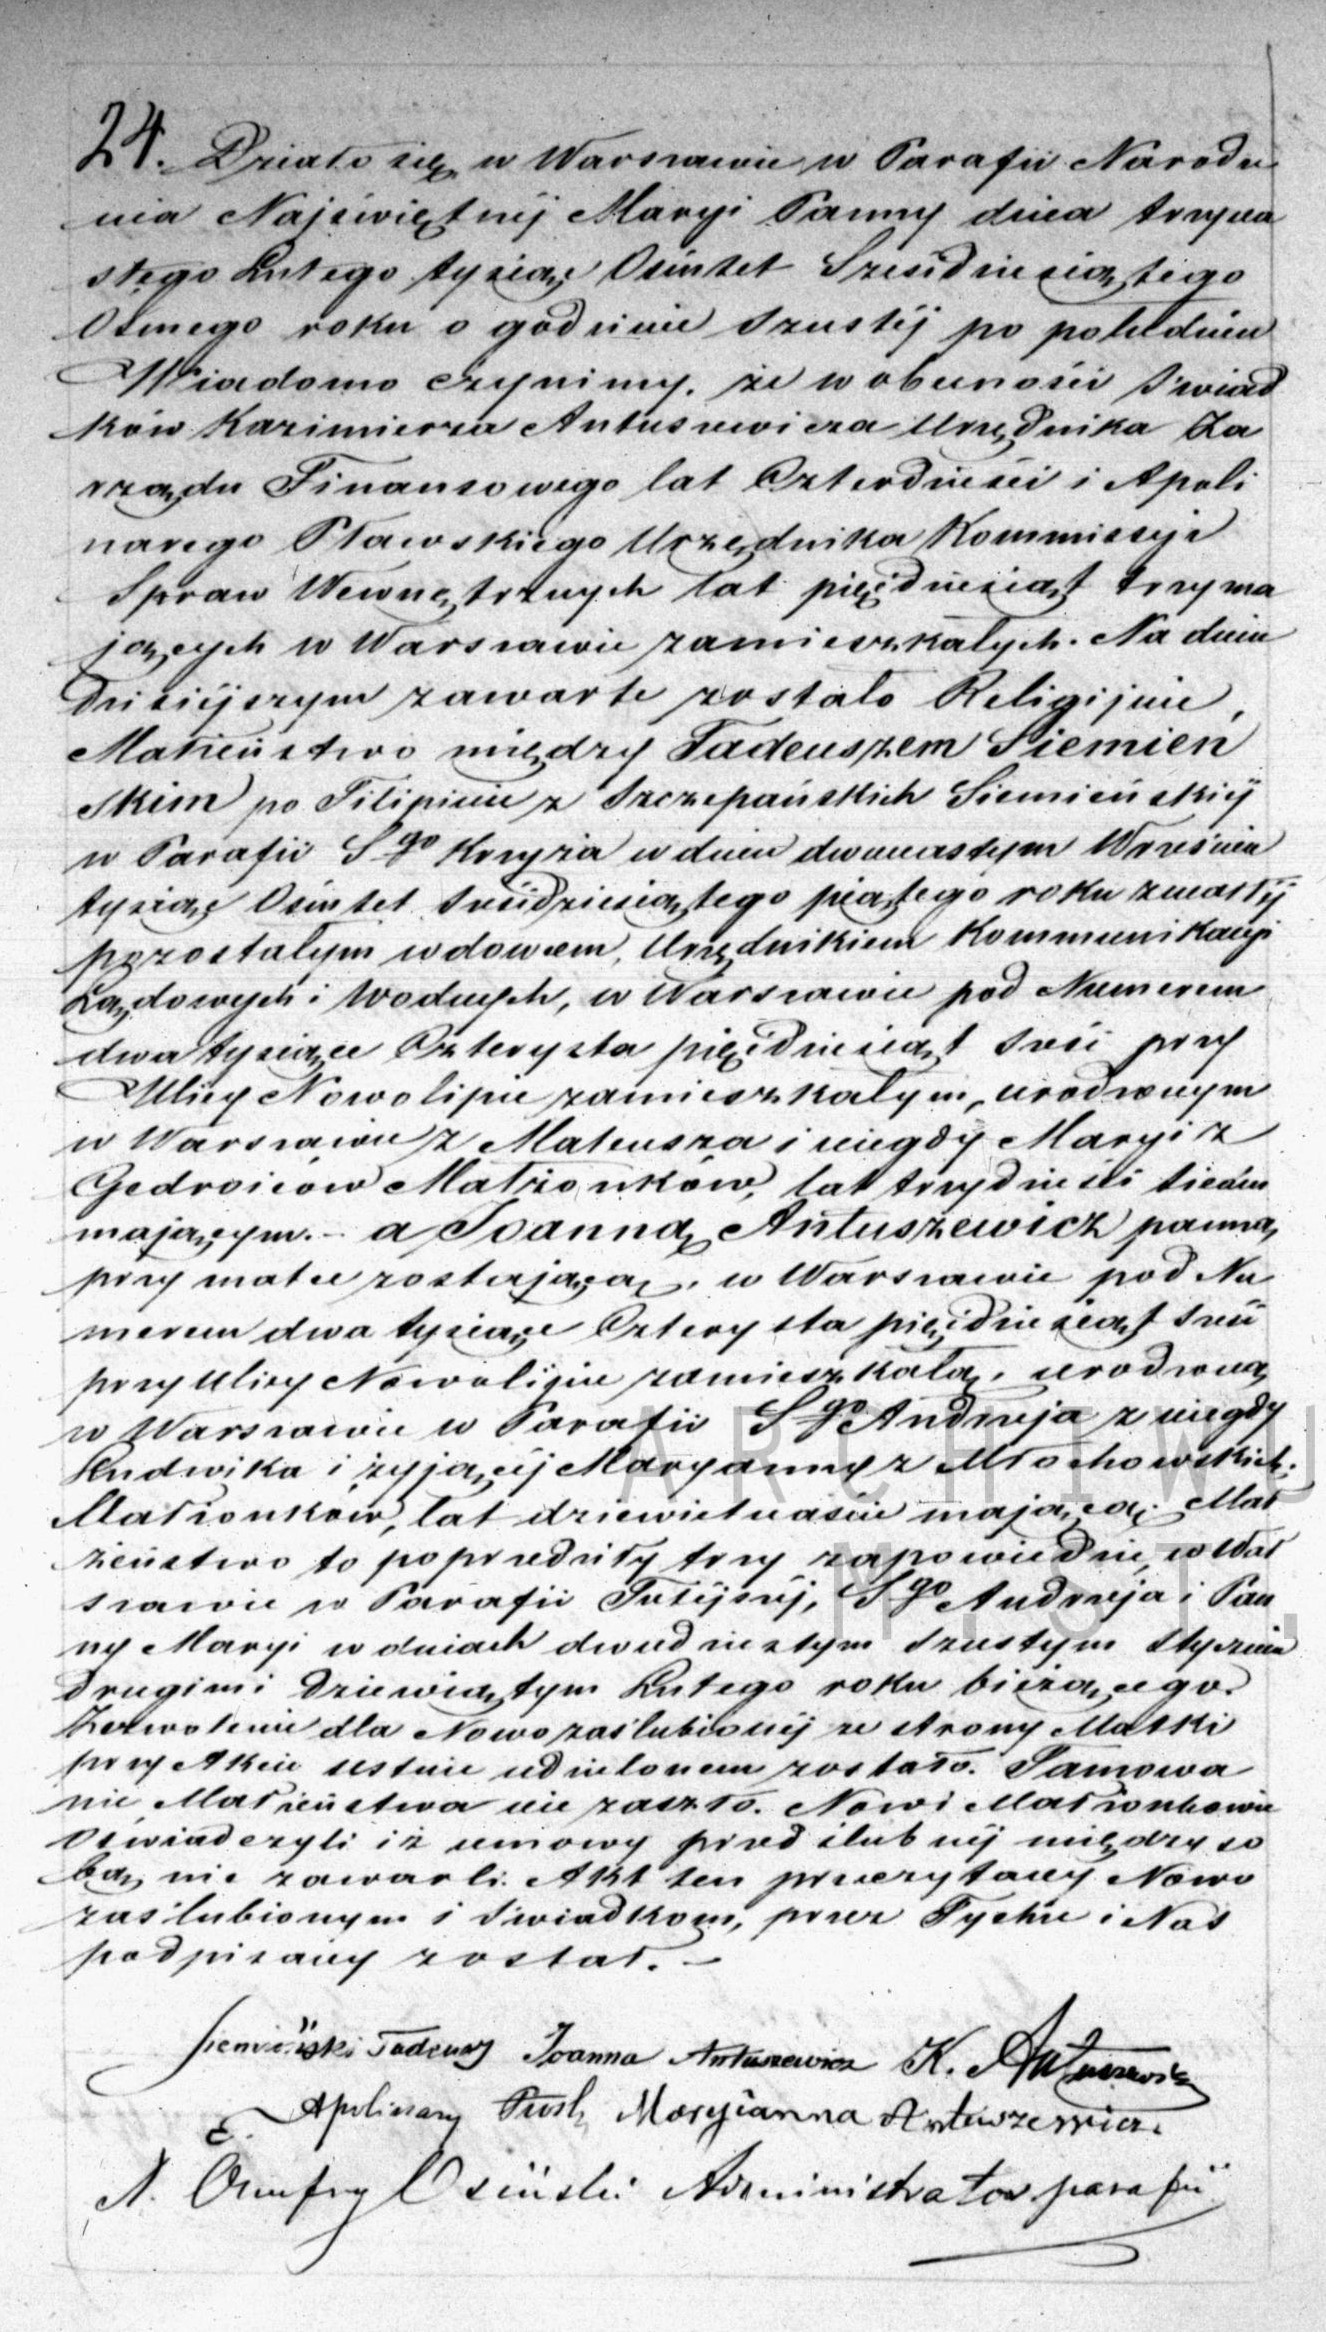 24. Działo się w Warszawie w Parafii Narodze
nia Najświętszéj Maryi Panny dnia trzyna
stego Lutego tysiąc Ośmset Sześćdziesiątego
Osmego roku o godzinie szustéj po południu
Wiadomo czynimy, że w obecności świad
ków Kazimierza Antuszewicza Urzędnika Za
rządu Finansowego lat Czterdzieści i Apoli
narego Pławskiego Urzędnika Kommissyi
Spraw Wewnętrznych lat pięćdziesiąt trzy ma
jących w Warszawie zamieszkałych. Na dniu
dzisiéjszym zawarte zostało Religijnie
Małżeństwo między Tadeuszem Siemień
skim po Filipinie z Szczepańskich Siemieńskiéj
w Parafii Sgo Krzyża w dniu dwunastym Września
tysiąc Ośmset sześćdziesiątego piątego roku zmarłéj
pozostałym wdowcem, Urzędnikiem Kommunikacyi
Lądowych i Wodnych, w Warszawie pod Numerem
dwa tysiące Czterysta pięćdziesiąt sześć przy
Ulicy Nowolipie zamieszkałym, urodzonym
w Warszawie z Mateusza i niegdy Maryi z
Gedroiców Małżonków, lat trzydzieści siedm
mającym. – a Joanną Antuszewicz panną,
przy matce zostającą, w Warszawie pod Nu
merem dwa tysiące Czterysta pięćdziesiąt sześć
przy Ulicy Nowolipie zamieszkałą, urodzoną
w Warszawie w Parafii Sgo Andrzeja z niegdy
Ludwika i żyjącéj Maryanny z Młochowskich
Małżonków, lat dziewietnaście mającą. Mał
żeństwo to poprzedziły trzy zapowiedzie, w War
szawie w Parafii Tutéjszéj, Sgo Andrzeja i Pan
ny Maryi w dniach dwudziestym szustym Stycznia
drugim i Dziewiątym Lutego roku bieżącego.
Zezwolenie dla Nowozaślubionéj ze strony Matki
przy Akcie ustnie udzielonem zostało. Tamowa
nie Małżeństwa nie zaszło. Nowi Małżonkowie
Oświadczyli iż umowy przedślubnéj między so
bą nie zawarli. Akt ten przeczytany Nowo
zaślubionym i Świadkom, przez Tychże i Nas
podpisany został. –
Siemieński Tadeusz Joanna Antuszewicz K. Antuszewicz
Apolinary Maryianna Antuszewicz.
Onufry Osiński Administrator parafii
ARCHIWUM
M. ST.